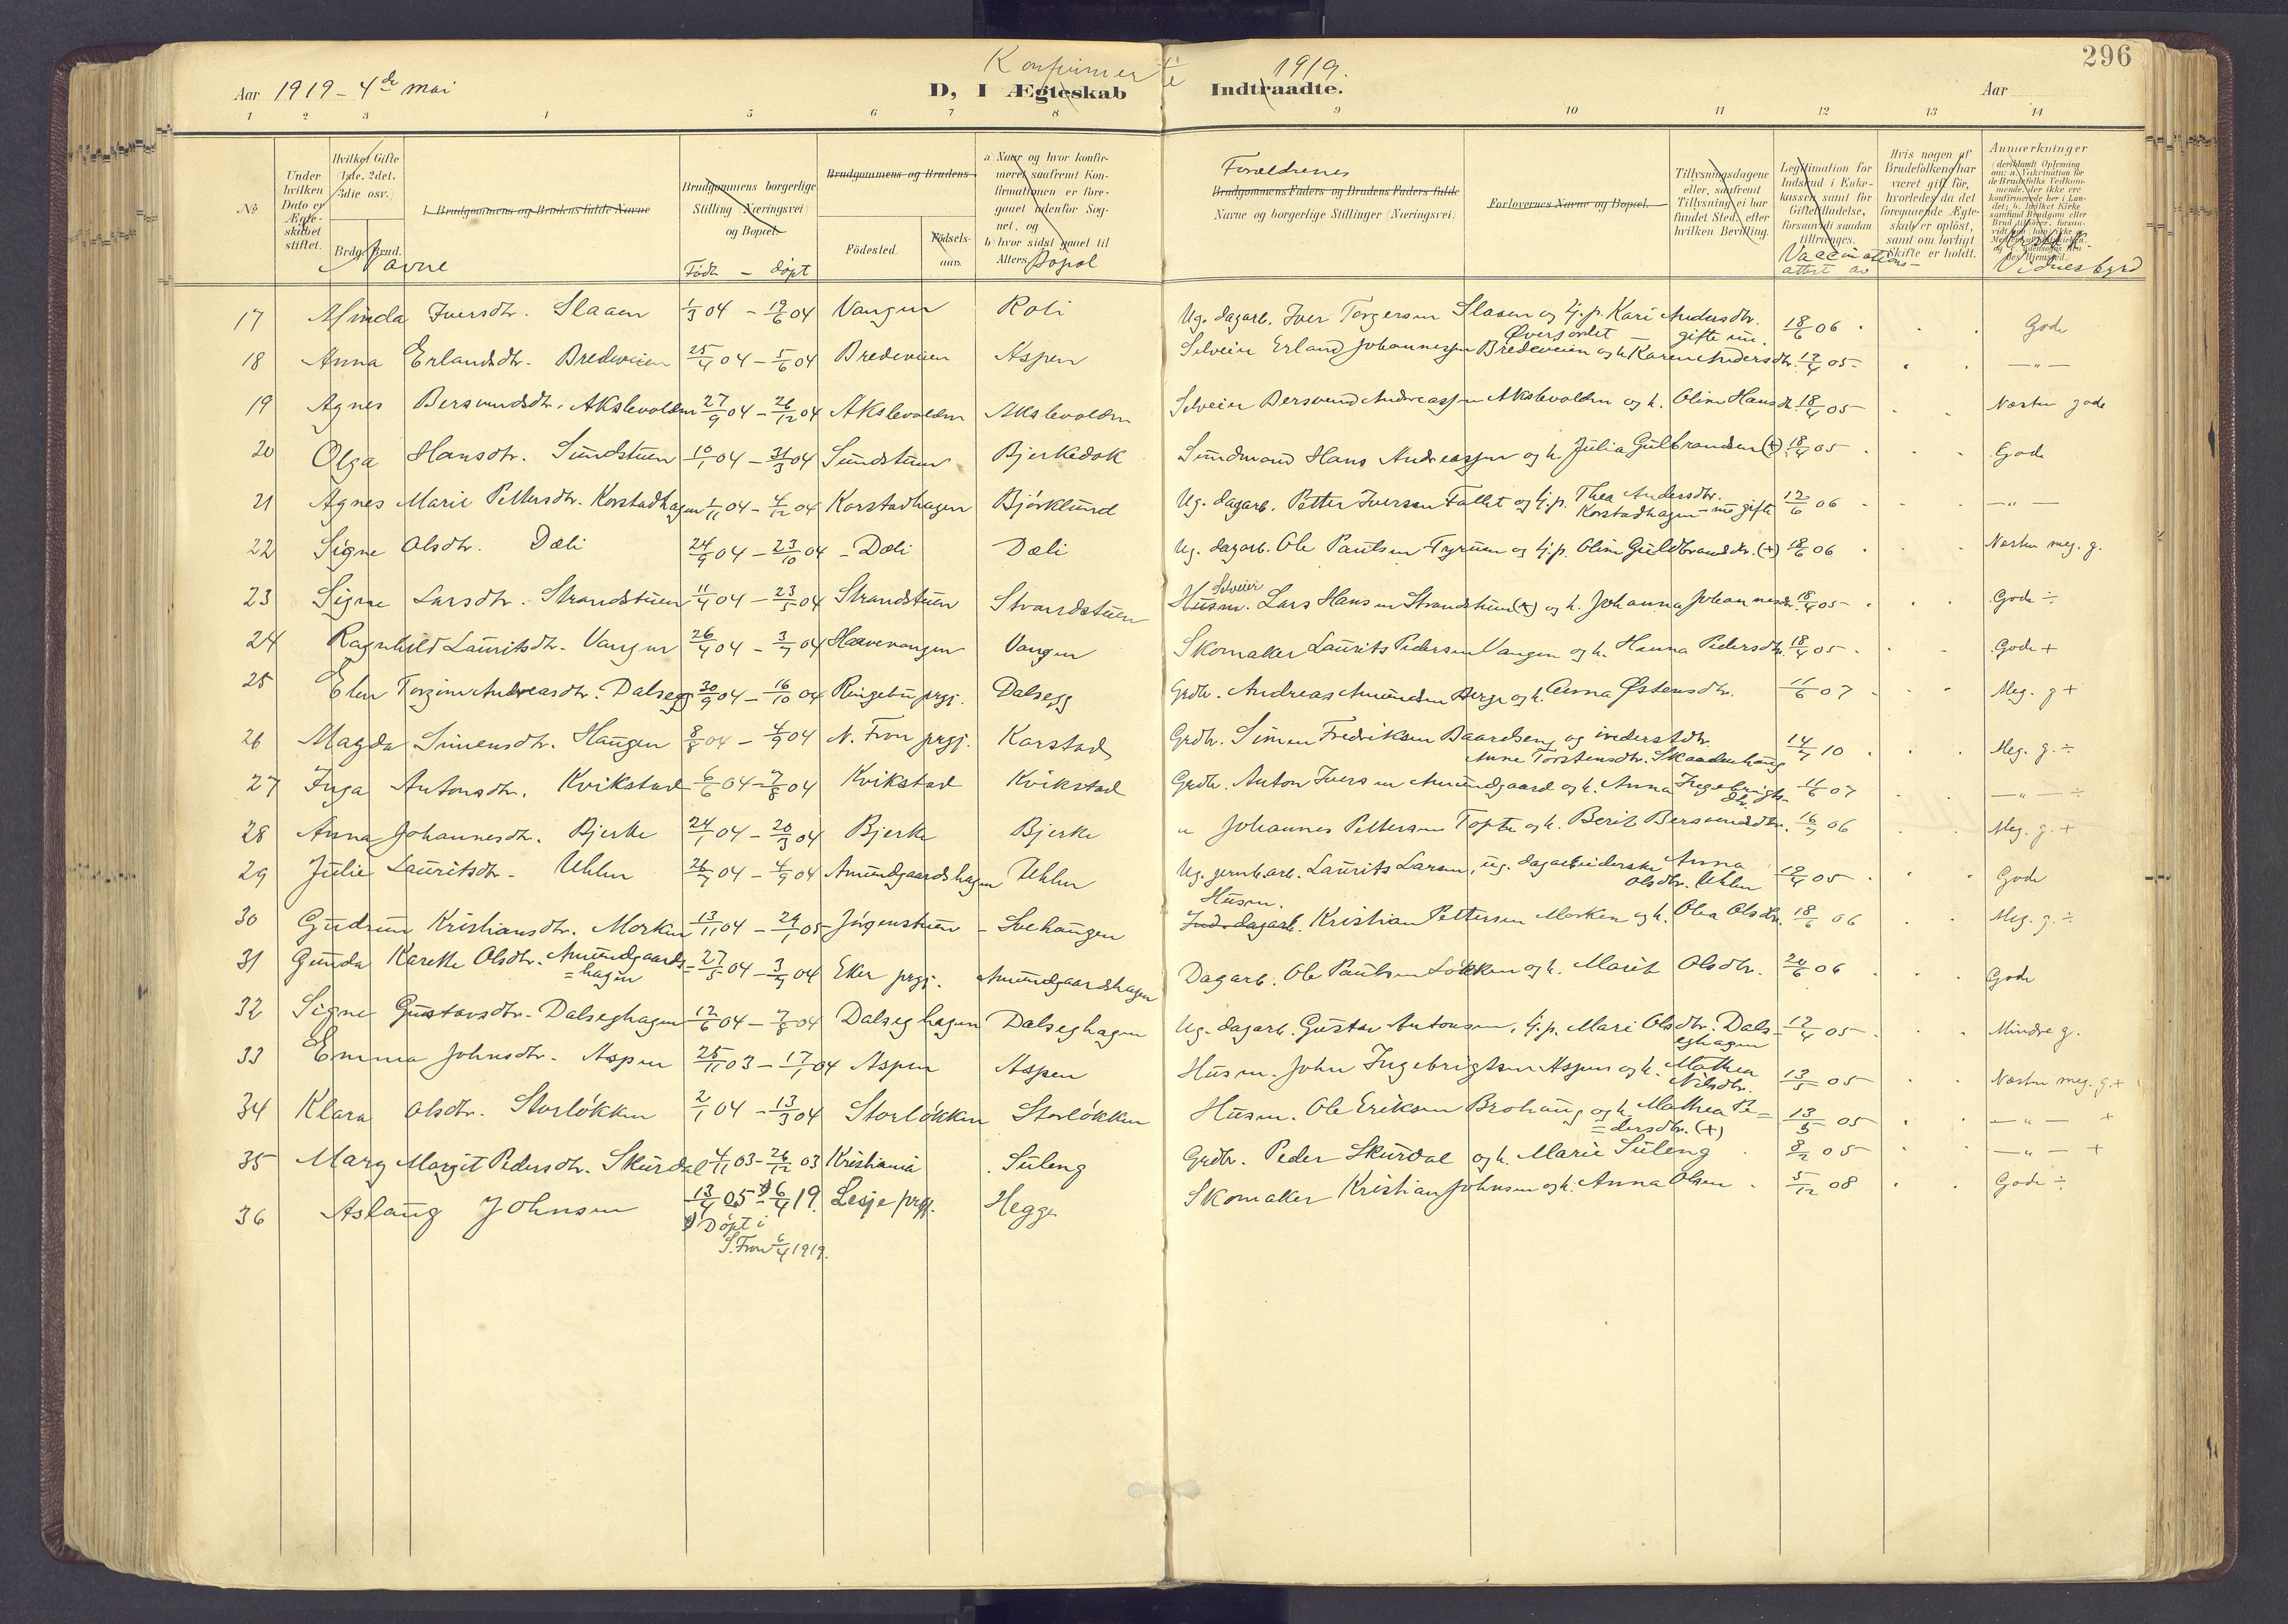 296
Konfirmerte 1919.
Aar 1919 - 4de mai D, I Ægteskab Indtraadte. Aar
1 2 3 4 5 6 7 8 9 10 11 12 13 14
№
Under hvilken Dato er Ægteskabet stiftet.
Hvilket Gifte (1ste, 2det, 3die osv.)
Brdg. Brud.
Navne
Brudgommens og Brudens fulde Navne
Brudgommens borgerlige Stilling (Næringsvei) og Bopæl.
Født - døpt
Brudgommens og Brudens
Fødested.
Fødselsaar.
a) Naar og hvor konfirmeret, saafremt Konfirmationen er foregaaet udenfor Sognet, og
b) hvor sidst gaaet til Alters.
Bopæl
Foreldrenes
Brudgommens Faders og Brudens Faders fulde
Navne og borgerlige Stillinger (Næringsvei)
Forlovernes Navne og Bopæl.
Tillysningsdagene eller, saafremt Tillysning ei har fundet Sted, efter hvilken Bevilling.
Legitimation for Indskud i Enkekassen samt for Giftetilladelse, forsaavidt saadan tiltrænges.
Vaccinations-attest av
Hvis nogen af Brudefolkene har været gift før, hvorledes da det foregaaende Ægteskab er opløst, samt om lovligt Skifte er holdt.
Anmærkninger
Vidnesbyrd
17 Minda Iversdtr. Slaaen 1/3 04 - 19/6 04 Vangen Roli Ug. dagarb. Iver Torgersen Slaaen og tj.p. Kari Andersdtr. 18/6 06 Gode
Øversvedet gifte nu.
18 Anna Erlandsdtr. Bredeveien 25/4 04 - 5/6 04 Bredeveien Aspen Selveier Erland Johannessen Bredeveien og h. Karen Andersdtr. 12/4 05 - " -
19 Agnes Bersvendsdtr. Akslevolden 27/9 04 - 26/12 04 Akslevolden Akslevolden Selveier Bersvend Andreassen Akslevolden og h. Oline Hansdtr. 18/4 05 Næsten gode
20 Olga Hansdtr. Sundstuen 10/1 04 - 31/3 04 Sundstuen Bjerkedok Sundmand Hans Andreassen og h. Julia Gulbrandsen (+) 18/4 05 Gode
21 Agnes Marie Pettersdtr. Korstadhagen 1/11 04 - 4/12 04 Korstadhagen Bjørklund Ug. dagarb. Petter Iversen Fallet og tj.p. Thea Andersdtr. 12/6 06 - " -
Korstadhagen - nu gifte
22 Signe Olsdtr. Dæli 24/9 04 - 23/10 04 Dæli Dæli Ug. dagarb. Ole Paulsen Tyruen og tj.p. Oline Guldbrandsdtr. (+) 18/6 06 Næsten meg. g.
Selveier
23 Signe Larsdtr. Strandstuen 11/4 04 - 23/5 04 Strandstuen Strandstuen Husm. Lars Hansen Strandstuen (+) og h. Johanna Johannesdtr. 18/4 05 Gode ÷
24 Ragnhild Lauritsdtr. Vangen 26/4 04 - 3/7 04 Haavevangen Vangen Skomaker Laurits Pedersen Vangen og h. Hanna Pedersdtr. 18/4 05 Gode +
25 Elen Torgine Andreasdtr. Dalsegg 30/9 04 - 16/10 04 Ringebu prgj. Dalsegg Grdbr. Andreas Amundsen Berge og h. Anna Østensdtr. 11/6 07 Meg. g +
26 Magda Simensdtr. Haugen 8/8 04 - 4/9 04 N. Fron prgj. Korstad Grdbr. Simen Fredriksen Baardseng og inderstdtr. 14/7 10 Meg. g. ÷
Anne Torstensdtr. Skaadenhaug
27 Inga Antonsdtr. Kvikstad 6/6 04 - 7/8 04 Kvikstad Kvikstad Grdbr. Anton Iversen Amundgaard og h. Anna Ingebrigts- 11/6 07 - " - ÷
dtr.
28 Anna Johannesdtr. Bjerke 24/1 04 - 20/3 04 Bjerke Bjerke " Johannes Pettersen Tofte og h. Berit Bersvendsdtr. 16/7 06 Meg. g. +
29 Julie Lauritsdtr. Uhlen 26/7 04 - 4/9 04 Amundgaardshagen Uhlen Ug. jernb.arb. Laurits Larsen, ug. dagarbeiderske Anna 12/4 05 Gode
Olsdtr. Uhlen
Husm.
30 Gudrun Kristiansdtr. Morken 13/11 04 - 29/1 05 Jogenstuen Svehaugen Ind. dagarb. Kristian Pettersen Morken og h. Olea Olsdtr. 18/6 06 Meg. g. ÷
31 Gunda Karette Olsdtr. Amundgaards- 27/5 04 - 3/7 04 Eker prgj. Amundgaardshagen Dagarb. Ole Paulsen Løkken og h. Marit Olsdtr. 20/6 06 Gode
=hagen
32 Signe Gustavsdtr. Dalseghagen 12/6 04 - 7/8 04 Dalseghagen Dalseghagen Ug. dagarb. Gustav Antonsen, tj.p. Mari Olsdtr. Dals- 12/4 05 Mindre g.
eghagen
33 Emma Johnsdtr. Aspen 25/11 03 - 17/1 04 Aspen Aspen Husm. John Ingebrigtsen Aspen og h. Mathea 13/5 05 Næsten meg. g. +
Nilsdtr.
34 Klara Olsdtr. Storløkken 2/1 04 - 13/3 04 Storløkken Storløkken Husm. Ole Eriksen Brohaug og h. Mathea Pe= 13/5 05 - " - +
=dersdtr. (+)
35 Mary Margit Pedersdtr. Skurdal 4/11 03 - 26/12 03 Kristiania Suleng Grdbr. Peder Skurdal og h. Marie Suleng 8/2 05 - " - +
36 Aslaug Johnsen 13/4 05 x) 6/4 19. Lesje prgj. Hegge Skomaker Kristian Johnsen og h. Anna Olsen 5/12 08 Gode ÷
x) Døpt i
S. Fron 6/4 1919.